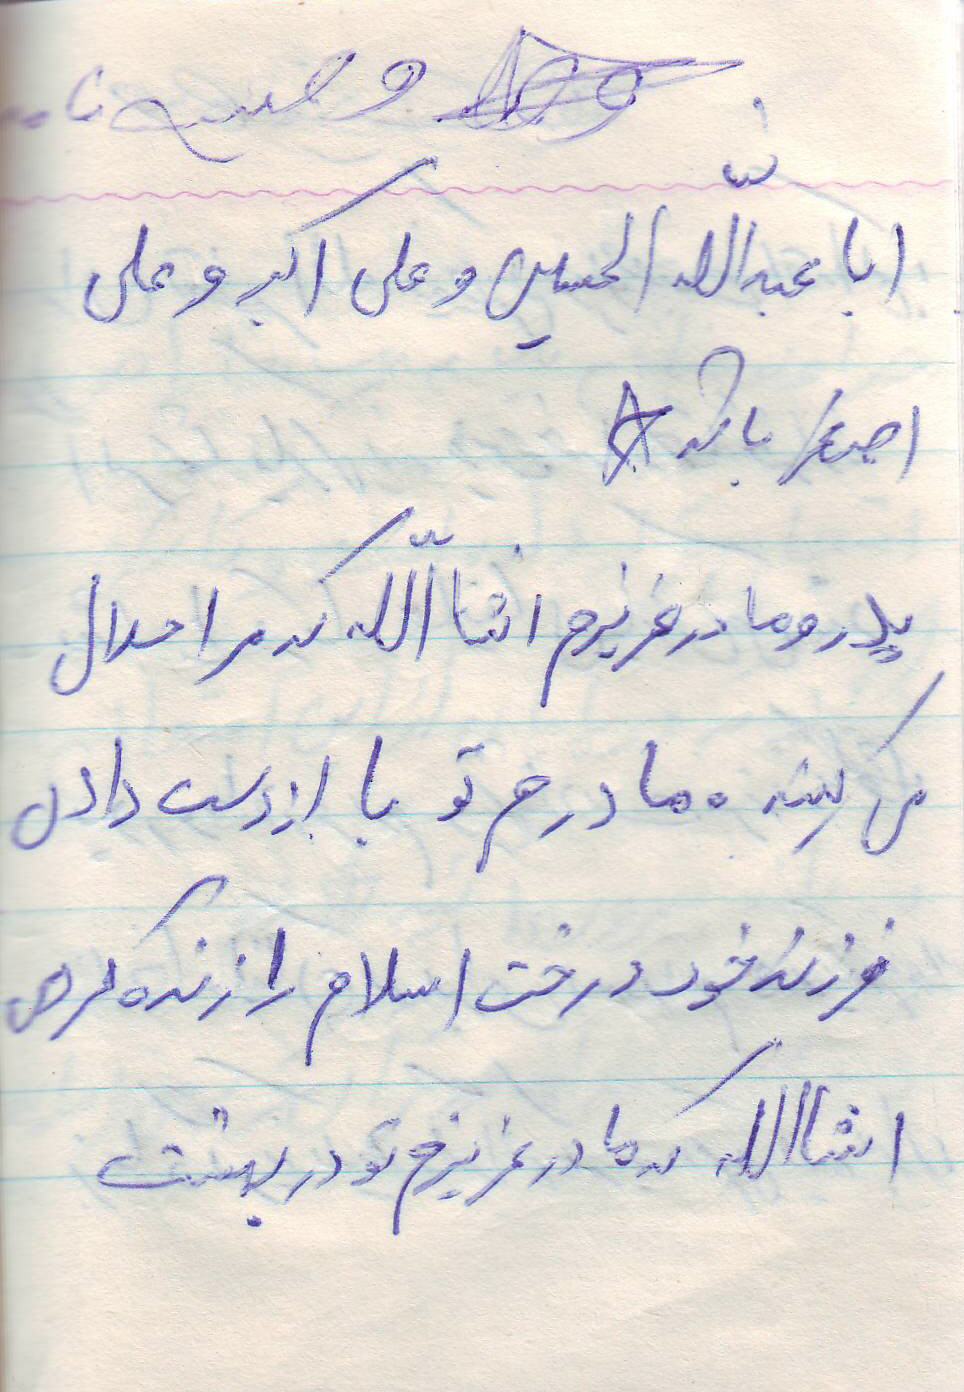 وصیت نامه
ابا عبداللّه الحسین و علی اکبر و علی
اصغر باشد
پدر و مادر عزیزم انشااللّه که مرا حلال
می کنید. مادرم تو با از دست دادن
فرزند خود درخت اسلام را زنده کردی
انشااللّه که مادر عزیزم تو در بهشت